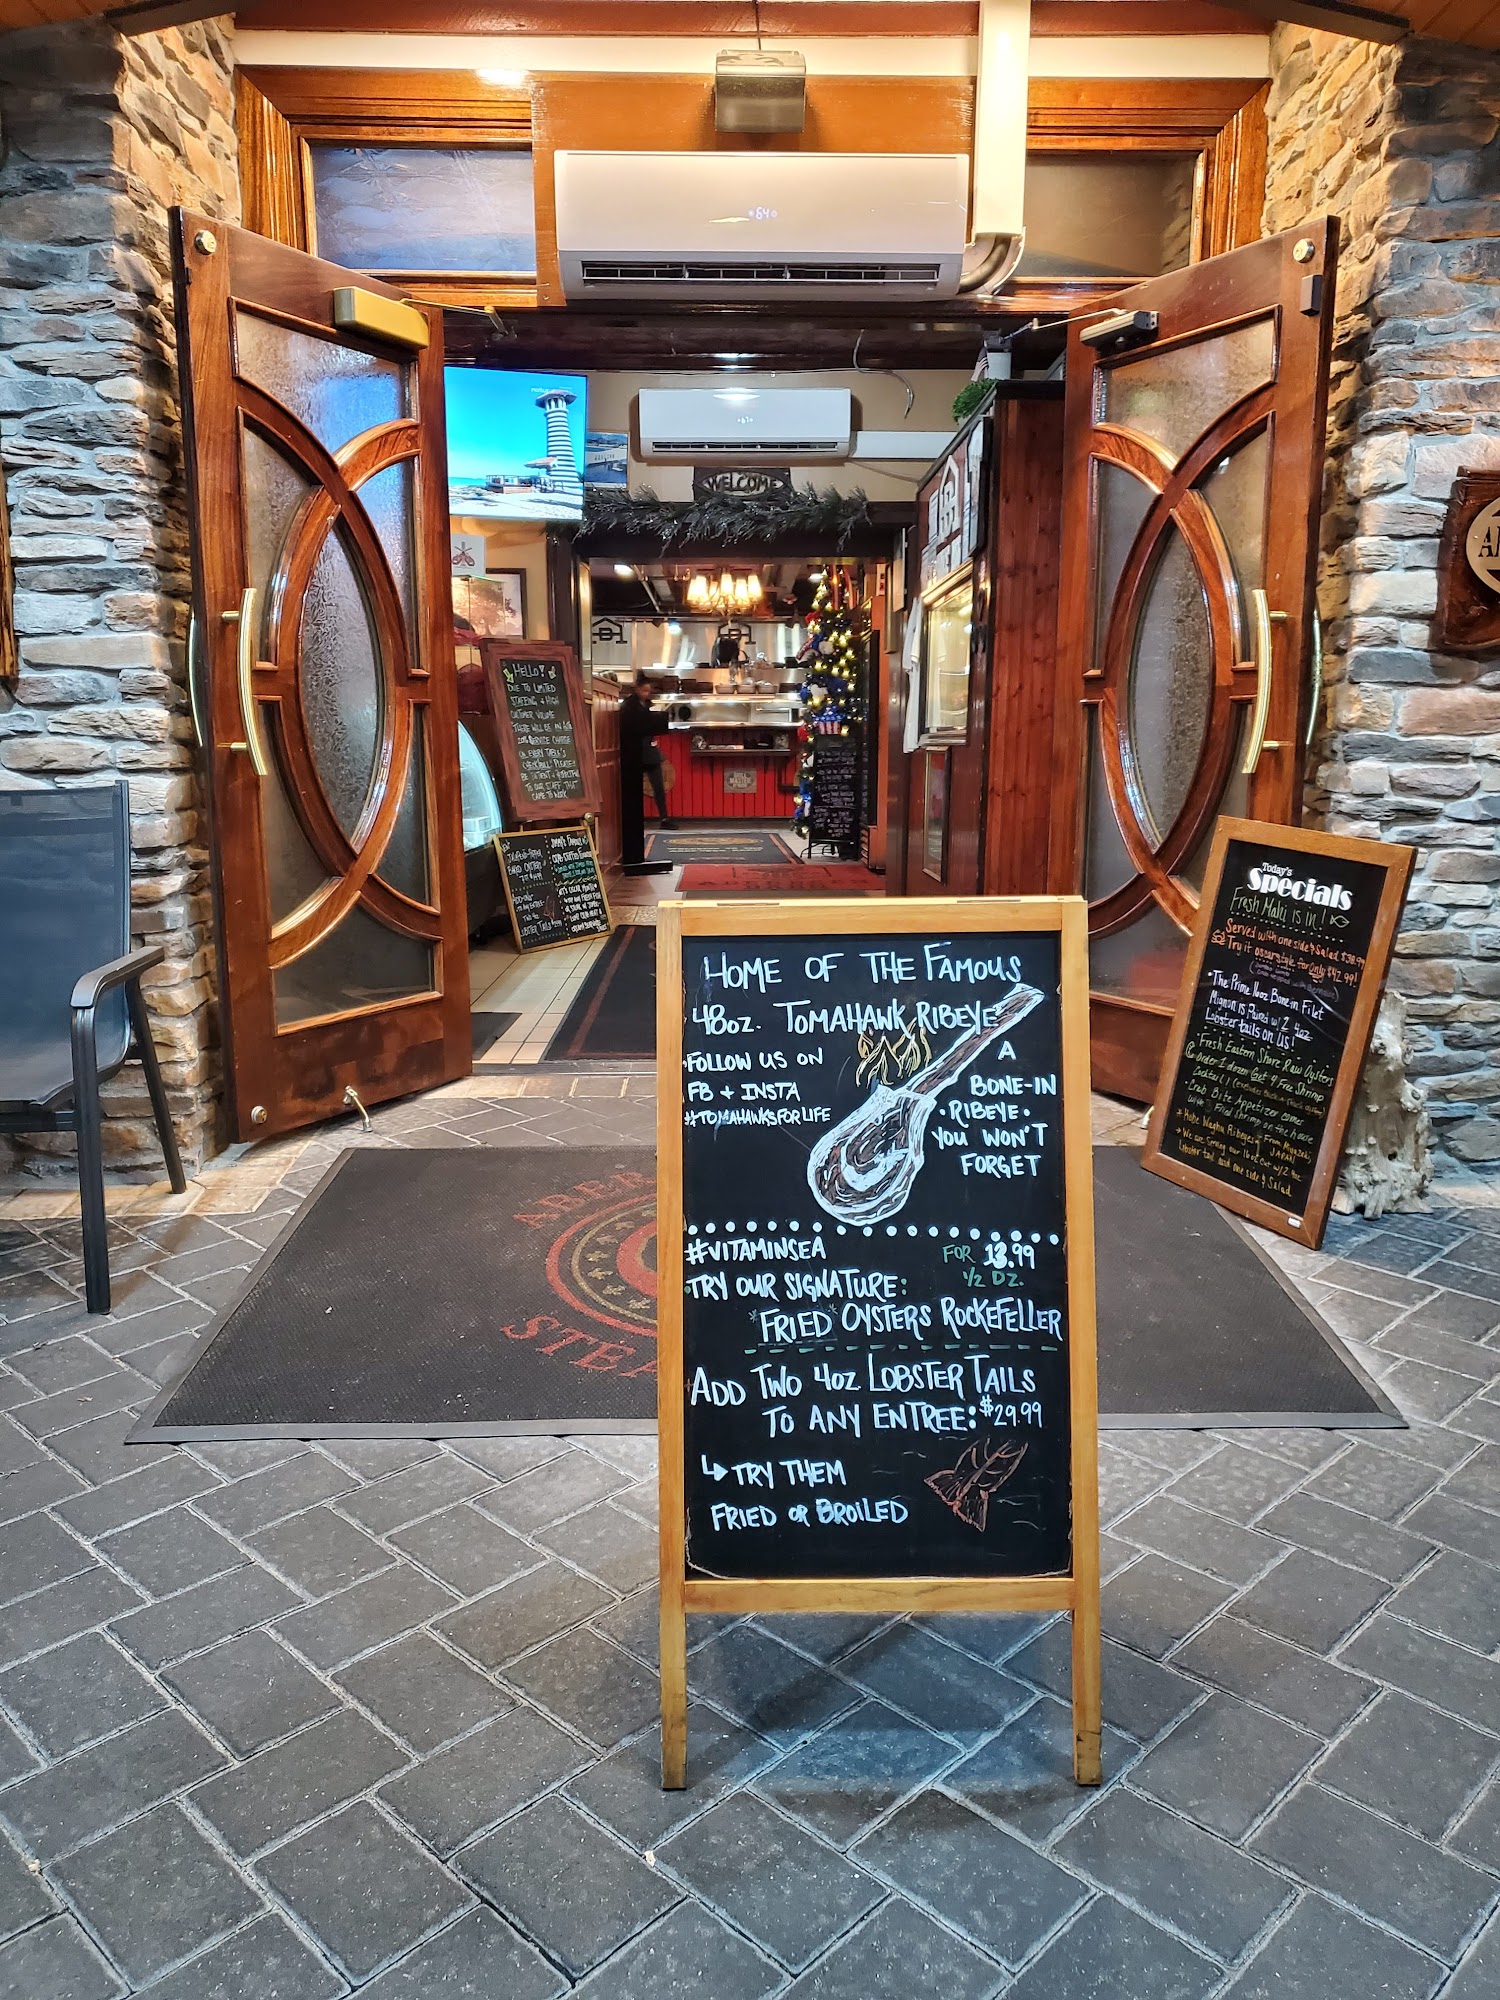 64
67
WELCOME
HELLO!
DUE TO LIMITED
STAFFING, & HIGH
CUSTOMER VOLUME
THERE WILL BE AN AUTO
20% SERVICE CHARGE
ON EVERY TABLE'S
CHECK/BILL! PLEASE!
BE PATIENT & RESPECTFUL
TO OUR STAFF THAT
CAME TO WORK
Today's
Specials
Fresh Mahi is in!
Served with one side & Salad $38.99
Try it oscar style for only $42.99!
The Prime 16oz Bone-in Filet
Mignon is Paired w/ 2 4oz
Lobster tails on us!
Fresh Eastern Shore Raw Oysters
Order 1 dozen Get 4 Free Shrimp
Crab Bite Appetizer comes
with 3 Fried Shrimp on the house
Ribeyes From Miyazaki
JAPAN
We are Serving our 16oz cut w/ 2 4oz
Lobster tail and one side & Salad
HOME OF THE FAMOUS
48OZ. TOMAHAWK RIBEYE
FOLLOW US ON
FB + INSTA
#TOMAHAWKSFORLIFE
A
BONE-IN
·RIBEYE·
YOU WON'T
FORGET
#VITAMINSEA
FOR 13.99
1/2 DZ.
TRY OUR SIGNATURE:
*FRIED* OYSTERS ROCKEFELLER
ADD TWO 4OZ LOBSTER TAILS
TO ANY ENTREE: $29.99
TRY THEM
FRIED OR BROILED
ABER
STE